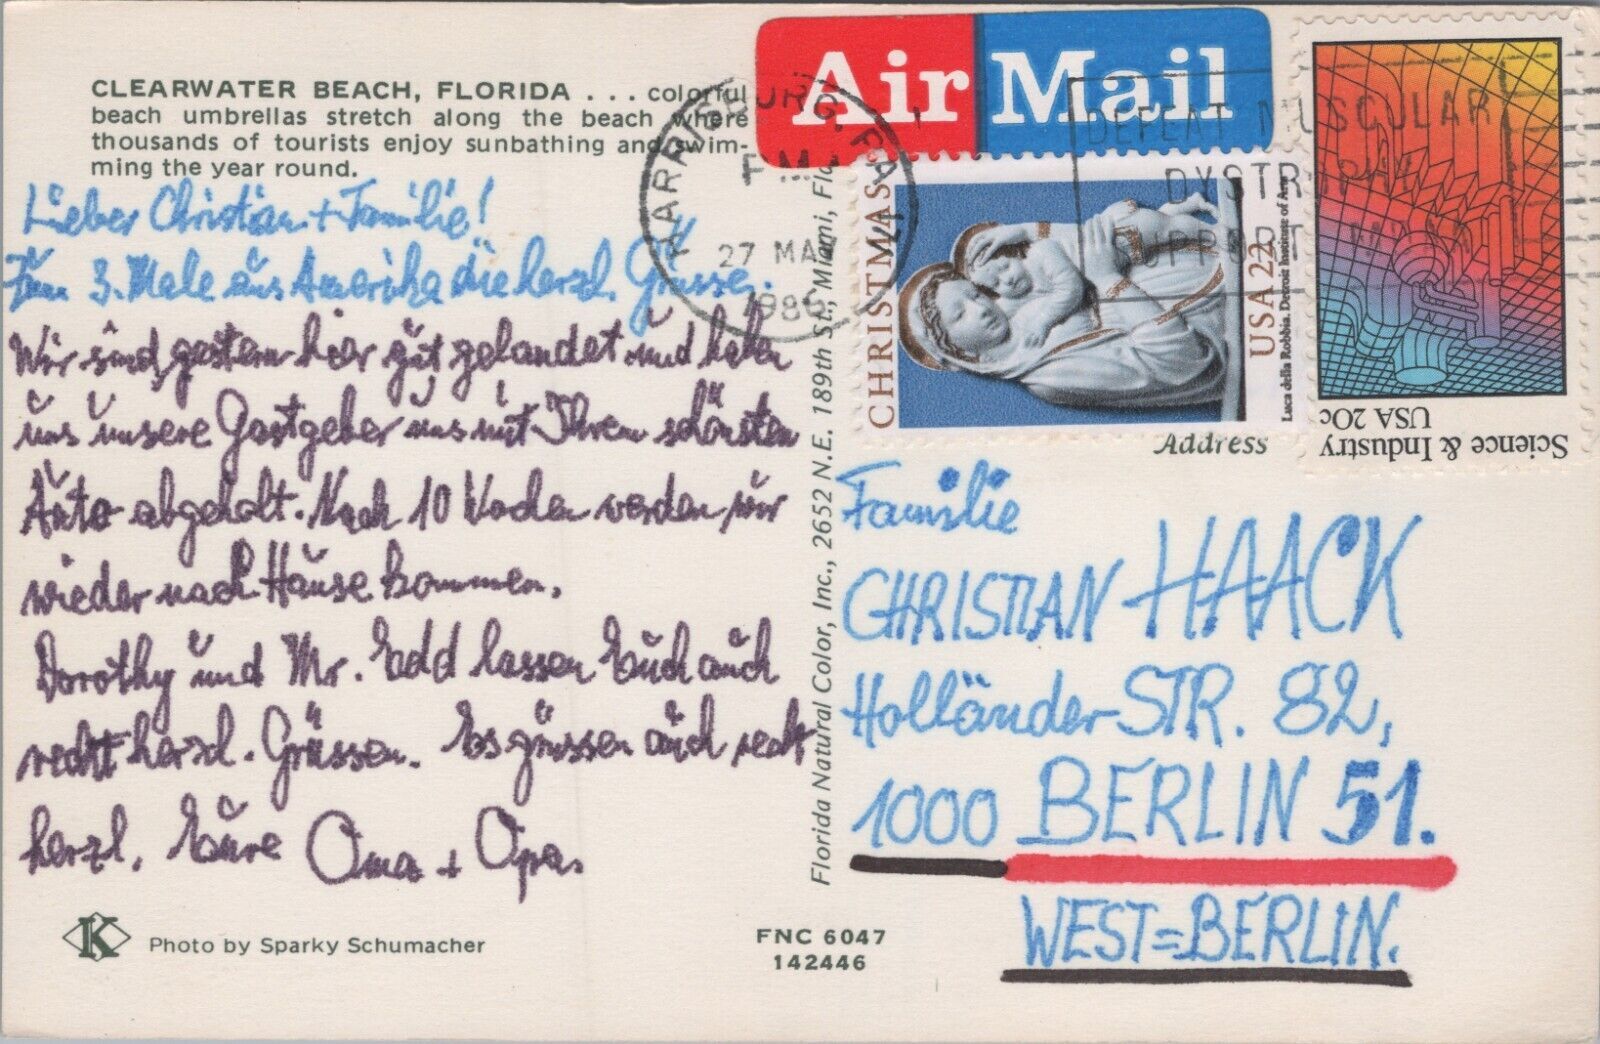 CLEARWATER BEACH, FLORIDA . . . colorful
beach umbrellas stretch along the beach where
thousands of tourists enjoy sunbathing and swim-
ming the year round.
Lieber Christian + Familie!
Zum 3. Male aus Amerika die herzl. Grüsse.
Wir sind gestern hier gut gelandet und haben
uns unsere Gastgeber uns mit Ihrem schönsten
Auto abgeholt. Nach 10 Wochen werden wir
wieder nach Hause kommen.
Dorothy und Mr. Edd lassen Euch auch
recht herzl. Grüssen. Es grüssen auch recht
herzl. Eure Oma + Opa.
K Photo by Sparky Schumacher
FNC 6047
142446
Florida Natural Color, Inc., 2652 N.E. 189th St., Miami, Fla
Air Mail
HARRISBURG, PA
PM
27 MAY
1986
DEFEAT MUSCULAR
DYSTROPHY
SUPPORT
CHRISTMAS
USA 22
Luca della Robbia, Detroit Institute of Arts
Science & Industry
USA 20c
Address
Familie
CHRISTIAN HAACK
Holländer STR. 82,
1000 BERLIN 51.
WEST=BERLIN.